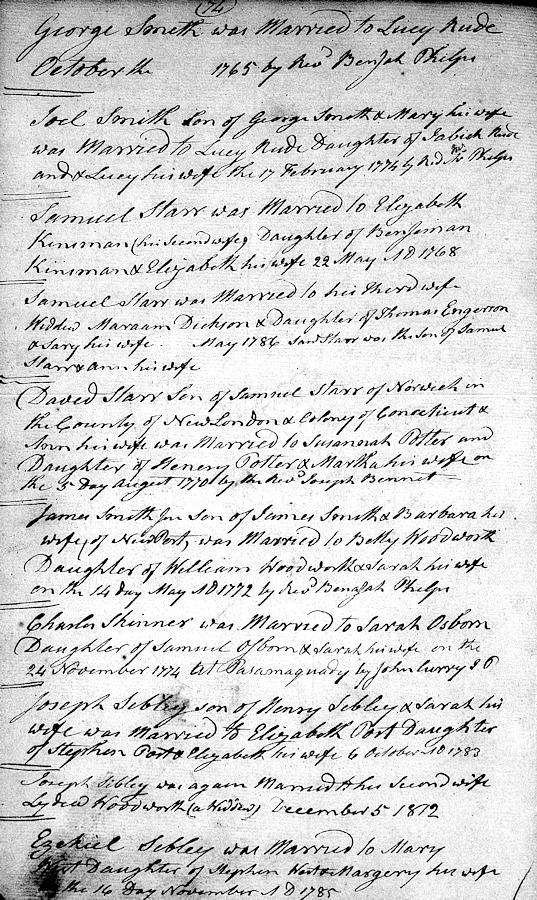 (74)
George Smith was Married to Lucy Rude
October the 1765 by Revd Benjah Phelps
Joel Smith Son of George Smith & Mary his wife
was Married to Lucy Rude Daughter of Jabick Rude
and & Lucy his wife the 17 February 1774 by Phelps
Samuel Starr was Married to Elizabeth
Kinsman (his Second wife) Daughter of Benjeman
Kinsman & Elizabeth his wife 22 May AD 1768
Samuel Starr was Married to his Therd wife
Widdew Maraam Dickson & Daughter of Thomas Engerson
& Sary his wife. May 1786 Saml Starr was the Son of Samuel
Starr & Ann his wife
David Starr Son of Samuel Starr of Norwich in
the County of New London & Colony of Conecticut &
Ann his wife was Married to Susannah Potter and
Daughter of Henery Potter & Martha his wife on
the 5 Day August 1770 by the Revd Joseph Bennet
James Smith Jur Son of James Smith & Barbara his
wife, of NewPort, was Married to Betty Woodworth
Daughter of William Woodworth & Sarah his wife
on the 14 day May AD 1772 by Revd Benajah Phelps
Charles Skinner was Married to Sarah Osborn
Daughter of Samuel Osborn & Sarah his wife on the
24 November 1774 At Pasamaquady by John Curry
Joseph Sebley son of Henry Sebley & Sarah his
wife was Married to Elizabeth Post Daughter
of Stephen Post & Elizabeth his wife 6 October AD 1783
Joseph Sebley was again Married to his Second wife
Lydea Woodworth (a Widdew) December 5 1812
Ezekiel Sebley was Married to Mary
West Daughter of Stephen West & Margery his wife
the 16 Day November AD 1785